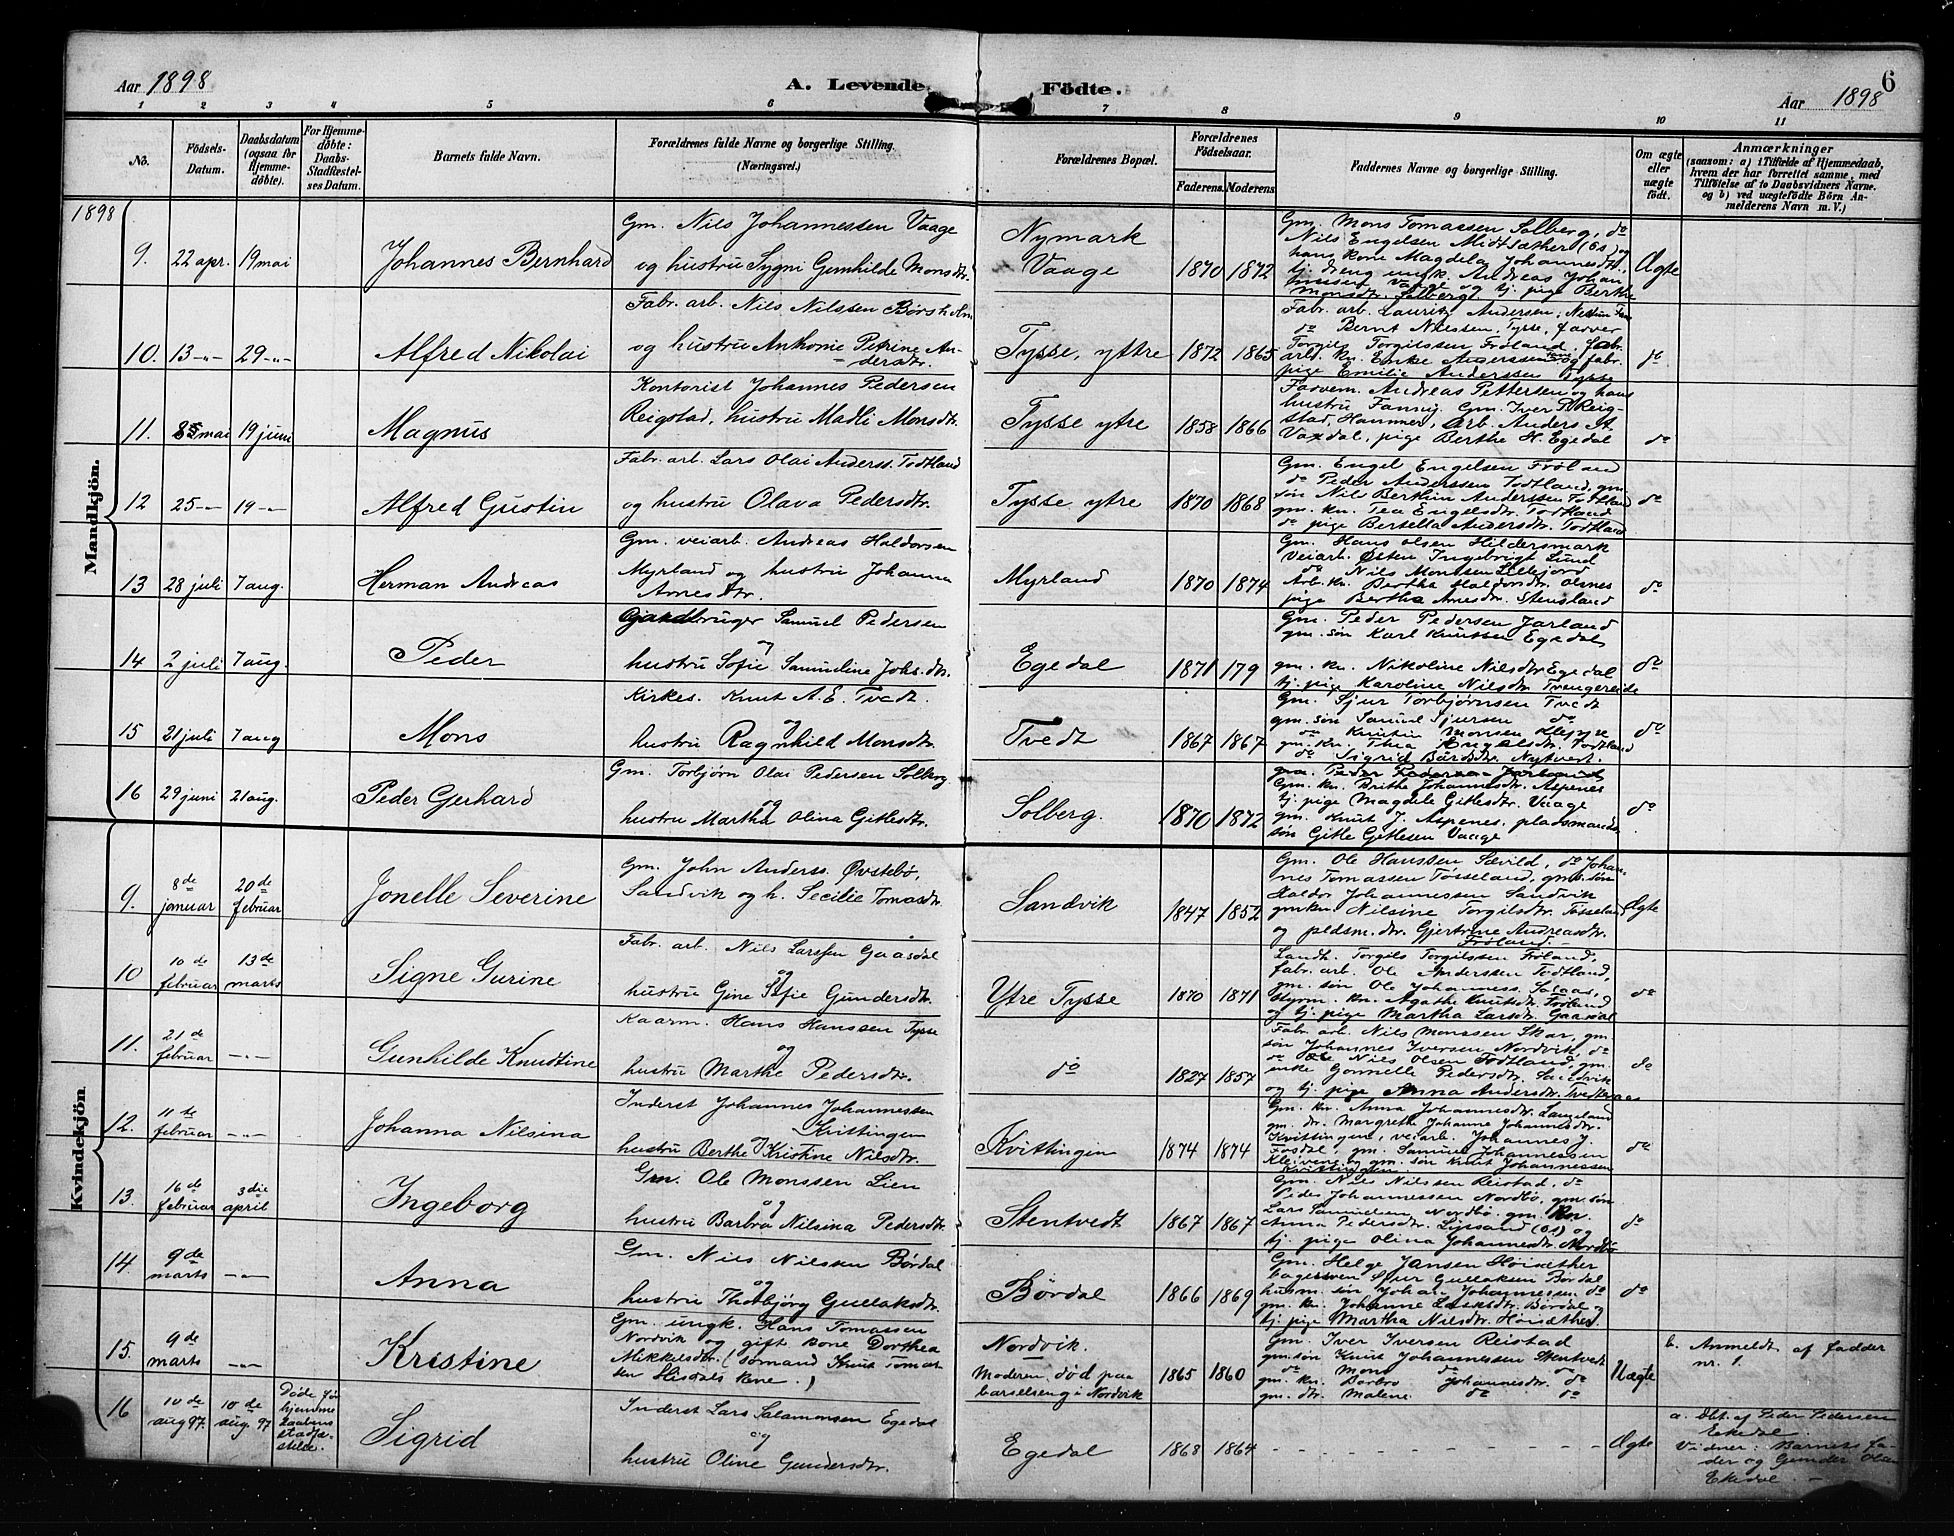 Aar 1898
A. Levende Födte.
6
Aar 1898
1 2 3 4 5 6 7 8 9 10 11
No.
Födsels-Datum.
Daabsdatum (ogsaa for Hjemme-döbte).
For Hjemme-döbte: Daabs-Stadfæstel-ses Datum.
Barnets fulde Navn.
Forældrenes fulde Navne og borgerlige Stilling.
(Næringsvei.)
Forældrenes Bopæl.
Forældrenes Födselsaar.
Faderens. Moderens.
Faddernes Navne og borgerlige Stilling.
Om ægte eller uægte födt.
Anmærkninger
(saasom: a) i Tilfælde af Hjemmedaab, hvem der har forrettet samme, med Tilföielse af to Daabsvidners Navne. og b) ved uægtefödte Börn An-melderens Navn m. V.)
1898
Mandkjön.
9. 22 apr. 19 mai
Johannes Bernhard
Gm. Nils Johannessen Vaage
og hustru Sygni Gunhilde Monsdtr.
Nymark
Vaage
1870 1872
Gm. Mons Tomassen Solberg, do
Nils Engelsen Midtsæther (Os) og
hans kone Magdela Johannesdtr.,
tj. dreng ungk. Andreas Johan
nessen Vaage og tj. pige Berthe
Monsdtr. Solberg.
Ægte
10. 13 -"- 29 -"-
Alfred Nikolai
Fabr. arb. Nils Nilssen Børsholm
og hustru Anthonie Petrine An-
dersdtr.
Tysse, yttre
1872 1865
Fabr. arb. Lauritz Andersen,
do Bernt Nilssen, Tysse, farver
Torgils Torgilssen Frøland, fabr.
arb. kn. Enke Anderssen og fabr.
pige Emilie Anderssen Tysse
do
11. mai 19 juni
Magnus
Kontorist Johannes Pedersen
Reigstad, hustru Madli Monsdtr.
Tysse ytre
1858 1866
Farvem. Andreas Pettersen og hans
hustru Fanny. Gm. Iver P. Reig-
stad, Hammer, arb. Anders A.
Vaxdal, pige Berthe H. Egedal
do
12 25 -"- 19 -"-
Alfred Gustin
Fabr. arb. Lars Olai Anderss. Todtland
og hustru Olava Pedersdtr.
Tysse ytre
1870 1868
Gm. Engel Engelsen Frøland
do Peder Anderssen Todtland, gm.
søn Nil Berthin Anderssen Todtland
gm. kn. Tea Engelsdtr. Todtland
do pige Bertella Andersdtr. Todtland
do
13 28 juli 7 aug.
Herman Andreas
Gm. veiarb. Andreas Haldorsen
Myrland og hustru Johanna
Arnesdtr.
Myrland
1870 1874
Gm. Hans Olsen Hildersmark
Veiarb. Østen Ingebrigt Lund
do Nils Monssen Lillejord
Arb. kn. Bertha Haldorsdtr. Olsnes
pige Bertha Arnesdtr. Stensland
do
14 2 juli 7 aug.
Peder
Gaardbruger Samuel Pedersen
og
hustru Sofie Samueline Johs. dtr.
Egedal
1871 179
Gm. Peder Pedersen Jarland
gm. søn Karl Knutssen Egedal
gm. kn. Nikoline Nilsdtr. Egedal
tj. pige Karoline Nilsdtr. Tvengereide
do
15 21 juli 7 aug
Mons
Kirkes. Knut A. E. Tvedt.
og
hustru Ragnhild Monsdtr.
Tvedt
1867 1867
Gm. Sjur Torbjørnsen Tvedt
gm. søn Samuel Sjursen do
do Knutin Monsen Kleppe
gm. kn. Thea Engelsdtr. Todtland
do Sigrid Bårdsdtr. Nytvert.
do
16 29 juni 21 aug.
Peder Gerhard
Gm. Torbjørn Olai Pedersen Solberg
og
hustru Martha Olina Gitlesdtr.
Solberg.
1870 1872
Gm. kn. Brithe Johannesdtr. Aspenes
tj. pige Magdele Gitlesdtr. Vaage
gm. Knut J. Aspenes, pladsmands-
søn Gitle Gitlesen Vaage
do
Kvindekjön
9. 8de januar 20de februar
Jonelle Severine
Gm. John Anderss. Øvstebø,
Sandvik og h. Secilie Tomasdtr.
Sandvik
1847 1852
Gm. Ole Hanssen Sævild, do Johan-
nes Tomassen Tøsseland, gm. søn
Haldor Johannessen Sandvik
gm. kn. Nilsine Torgilsdtr. Tøsseland
og pldsm. dtr. Gjertrine Andreasdtr.
Frøland.
Ægte
10 10de februar 13de marts
Signe Gurine
Fabr. arb. Nils Larssen Gaasdal
og
hustru Gine Sofie Gundersdtr.
Ytre Tysse
1870 1871
Landh. Torgils Torgilssen Frøland,
fabr. arb. Ole Anderssen Todtland,
gm. søn Ole Johanness.
styrm. kn. Agathe Knutsdtr. Frøland
og tj. pige Martha Larsdtr. Gaasdal
do
11. 21de februar -"-
Gunhilde Knudtine
Kaarm. Hans Hanssen Tysse
og
hustru Marthe Pedersdtr.
do
1827 1857
Fabr. arb. Nils Monssen Skar, gm.
søn Johannes Iversen Nordvik, do
do Nils Olsen Todtland, gm.
enke Gonnelle Pedersdtr. Sandvik
og tj. pige Anna Andersdtr.
do
12. 11te februar -"-
Johanna Nilsina
Inderst Johannes Johannessen
Kvittingen
hustru Berthe Kristine Nilsdtr.
Kvittingen
1874 1874
Gm. kn. Anna Johannesdtr. Langeland
gm. dr. Margrethe Johanne Johannesdtr.
Kvittingen, veiarb. Johannes J.
Fosdal, gm. Samuel Johannessen
Kleivene og gm. søn Knut Johannessen
Kvittingen
do
13. 16de februar 3die april
Ingeborg
Gm. Ole Monssen Lien
og
hustru Barbro Nilsina Pedersdtr.
Stentvedt
1867 1867
Gm. Niels Nilssen Reistad, do
Peder Johannessen Nordbø, gm. søn
Lars Samuelsen Nordbø. gm. kn.
Anna Pedersdtr. Lyssand (Os) og
tj. pige Olina Johannesdtr. Nordbø
do
14. 9de marts -"-
Anna
Gm. Niels Nilssen Børdal
og
hustru Thorbjørg Gullaksdtr.
Børdal
1866 1869
Gm. Helge Jansen Hoisæther
bagersven Sjur Gullaksen Børdal
husm. søn Johan Johannessen do
gm. kn. Johanne Larsdtr. Børdal og
tj. pige Martha Nilsdtr. Hoisæther
do
15. 9de marts -"-
Kristine
Gm. ungk. Hans Tomassen
Nordvik og gift Kone Dorthea
Mikkelsdtr. (sømand Knut Tomas
sen Hisdals kone.)
Nordvik.
Moderen død paa
barselseng i Nordvik
1865 1860
Gm. Iver Iversen Reistad
gm. søn Knut Johannessen Stentvedt
do Mons do do
gm. kn. Barbro Johannesdtr. do
gm. dtr. Malene do do
Uægte
b. Anmeldt af fadder
nr. 1.
16 10de aug 97. 10de aug. 97
Døde før
hjemme
daabens
stadfæ-
stelse.
Sigrid
Inderst Lars Salamonsen Egedal
og
hustru Oline Gundersdtr.
Egedal
1868 1864
- - - - - - - - - -
Ægte
a. Dbt. af Peder Pedersen
Ekedal.
Vidner: Barnets fa-
der og Gunder Olsen
Ekedal. -